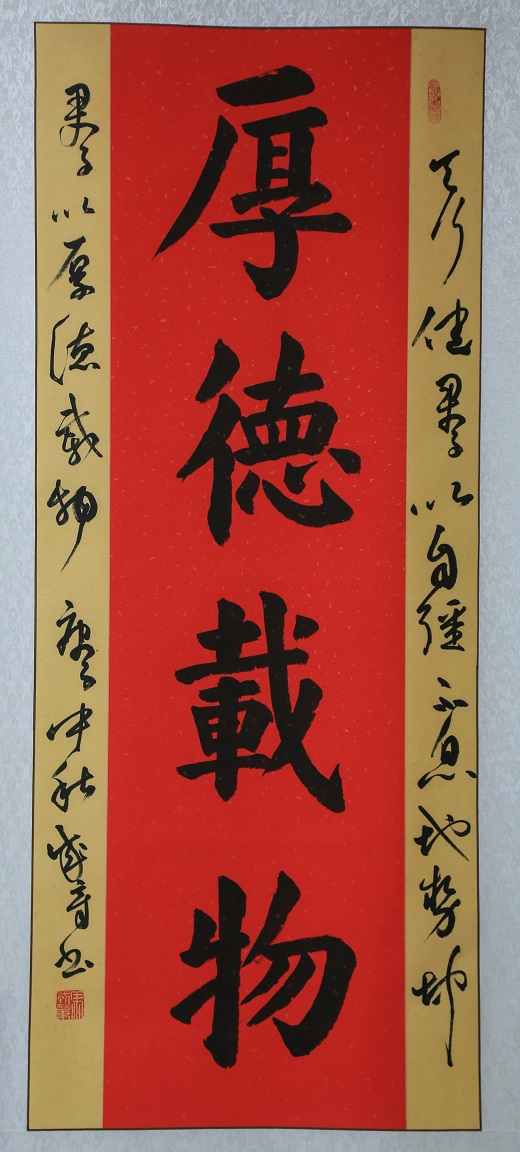 厚德載物
天行健君子以自彊不息地势坤
君子以厚德载物 庚子中秋书